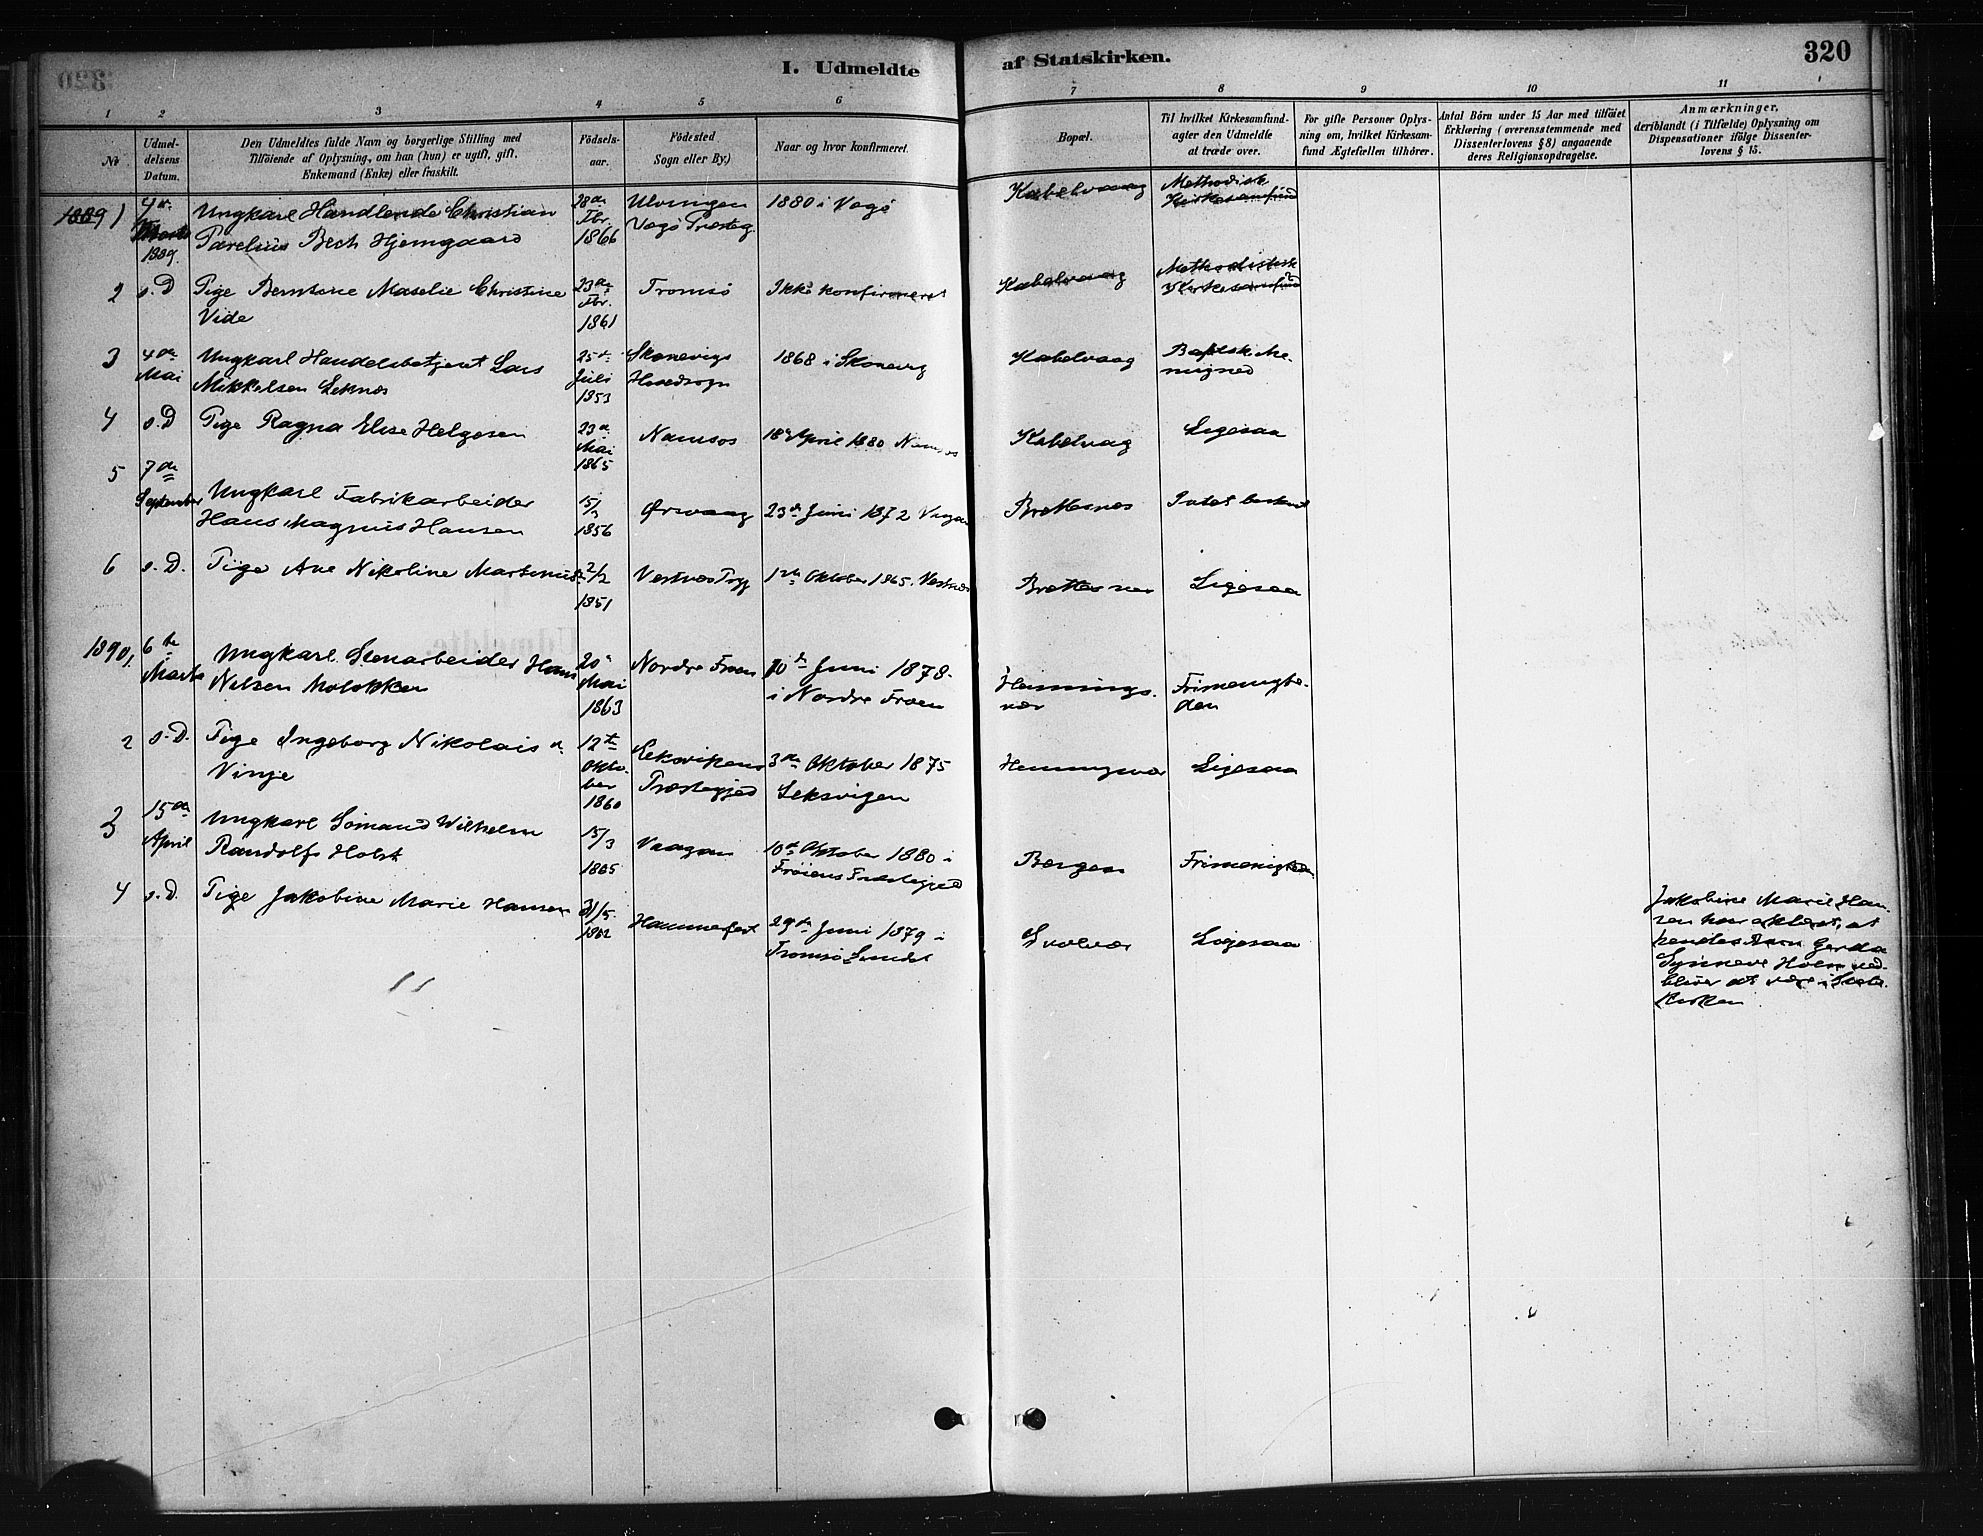 I. Udmeldte af Statskirken. 320
1 2 3 4 5 6 7 8 9 10 11
Nr.
Udmel-
delsens
Datum.
Den Udmeldtes fulde Navn og borgerlige Stilling med
Tilføiende af Oplysning, om han (hun) er ugift, gift,
Enkemand (Enke) eller fraskilt.
Fødsels-
aar.
Fødested
Sogn eller By.)
Naar og hvor konfirmeret.
Bopæl.
Til hvilket Kirkesamfund-
agter den Udmeldte
at træde over.
For gifte Personer Oplys-
ning om, hvilket Kirkesam-
fund Ægtefællen tilhører.
Antal Børn under 15 Aar med tilføiet
Erklæring (overensstemmende med
Dissenterlovens §8) angaaende
deres Religionsopdragelse.
Anmærkninger,
deriblandt (i Tilfælde) Oplysning om
Dispensationer ifølge Dissenter-
lovens § 15.
1889 1 4de Marts 1889. Ungkarl Handlende Christian
Parelius Bech Hjemgaard
28de Fbr. 1866 1880 i Vagø Kabelvaag Methodisk
Kirkesamfund
2 s. D Pige Berntine Maselie Christine
Vide
23de Fbr. 1861 Tromsø Ikke konfirmeret Kabelvaag Methodistisk
Kirkesamfund
3 4de Mai Ungkarl Handelsbetjent Lars
Mikkelsen Leknes
25de Juli 1853 Skonevigs
Hovedsogn
1868 i Skonevig Kabelvaag
4 s. D Pige Ragna Elise Helgesen 23de Mai 1865 Namsos 18de April 1880 Namsos Kabelvaag Ligesaa
5 7de September Ungkarl Fabrikarbeider
Hans Magnus Hansen
1856 Ørsvaag 23de Juni 1872 Vagan Brettesnes
6 s. D. Pige Ane Nikoline Martinus 2/2 1851 1ste Oktober 1865. Vestnæs Brettesnes Ligesaa
1890 1. 6te Marts Ungkarl Stenarbeider Hans
Nilsen Moløkken
20de Mai 1863 Nordre Froen 10de Juni 1878.
i Nordre Froen
Hennings-
vær
Frimenighe-
den
2 s. D. Pige Ingeborg Nikolais d.
Vinje
12te Okto-
ber
1860
Leksvikens
Præstegjed
3de Oktober 1875
Leksvigen
Henningsvær Ligesaa
3 15de April Ungkarl Sømand Wilhelm
Randolf Holst
15/3 1865 Vaagan 10de Oktober 1880 i
Frøiens Præstegjed
Bergen Frimenigheden
4 s. D. Pige Jakobine Marie Hansen 31/5 1862 Hammerfest 29de Juni 1879 i
Tromsø Sundet
Svolvær Ligesaa
Jakobine Marie Han-
sen har erklæret, at
hendes Barn Gerda
Synneve Holm ved-
bliver at være i Stats-
kirken